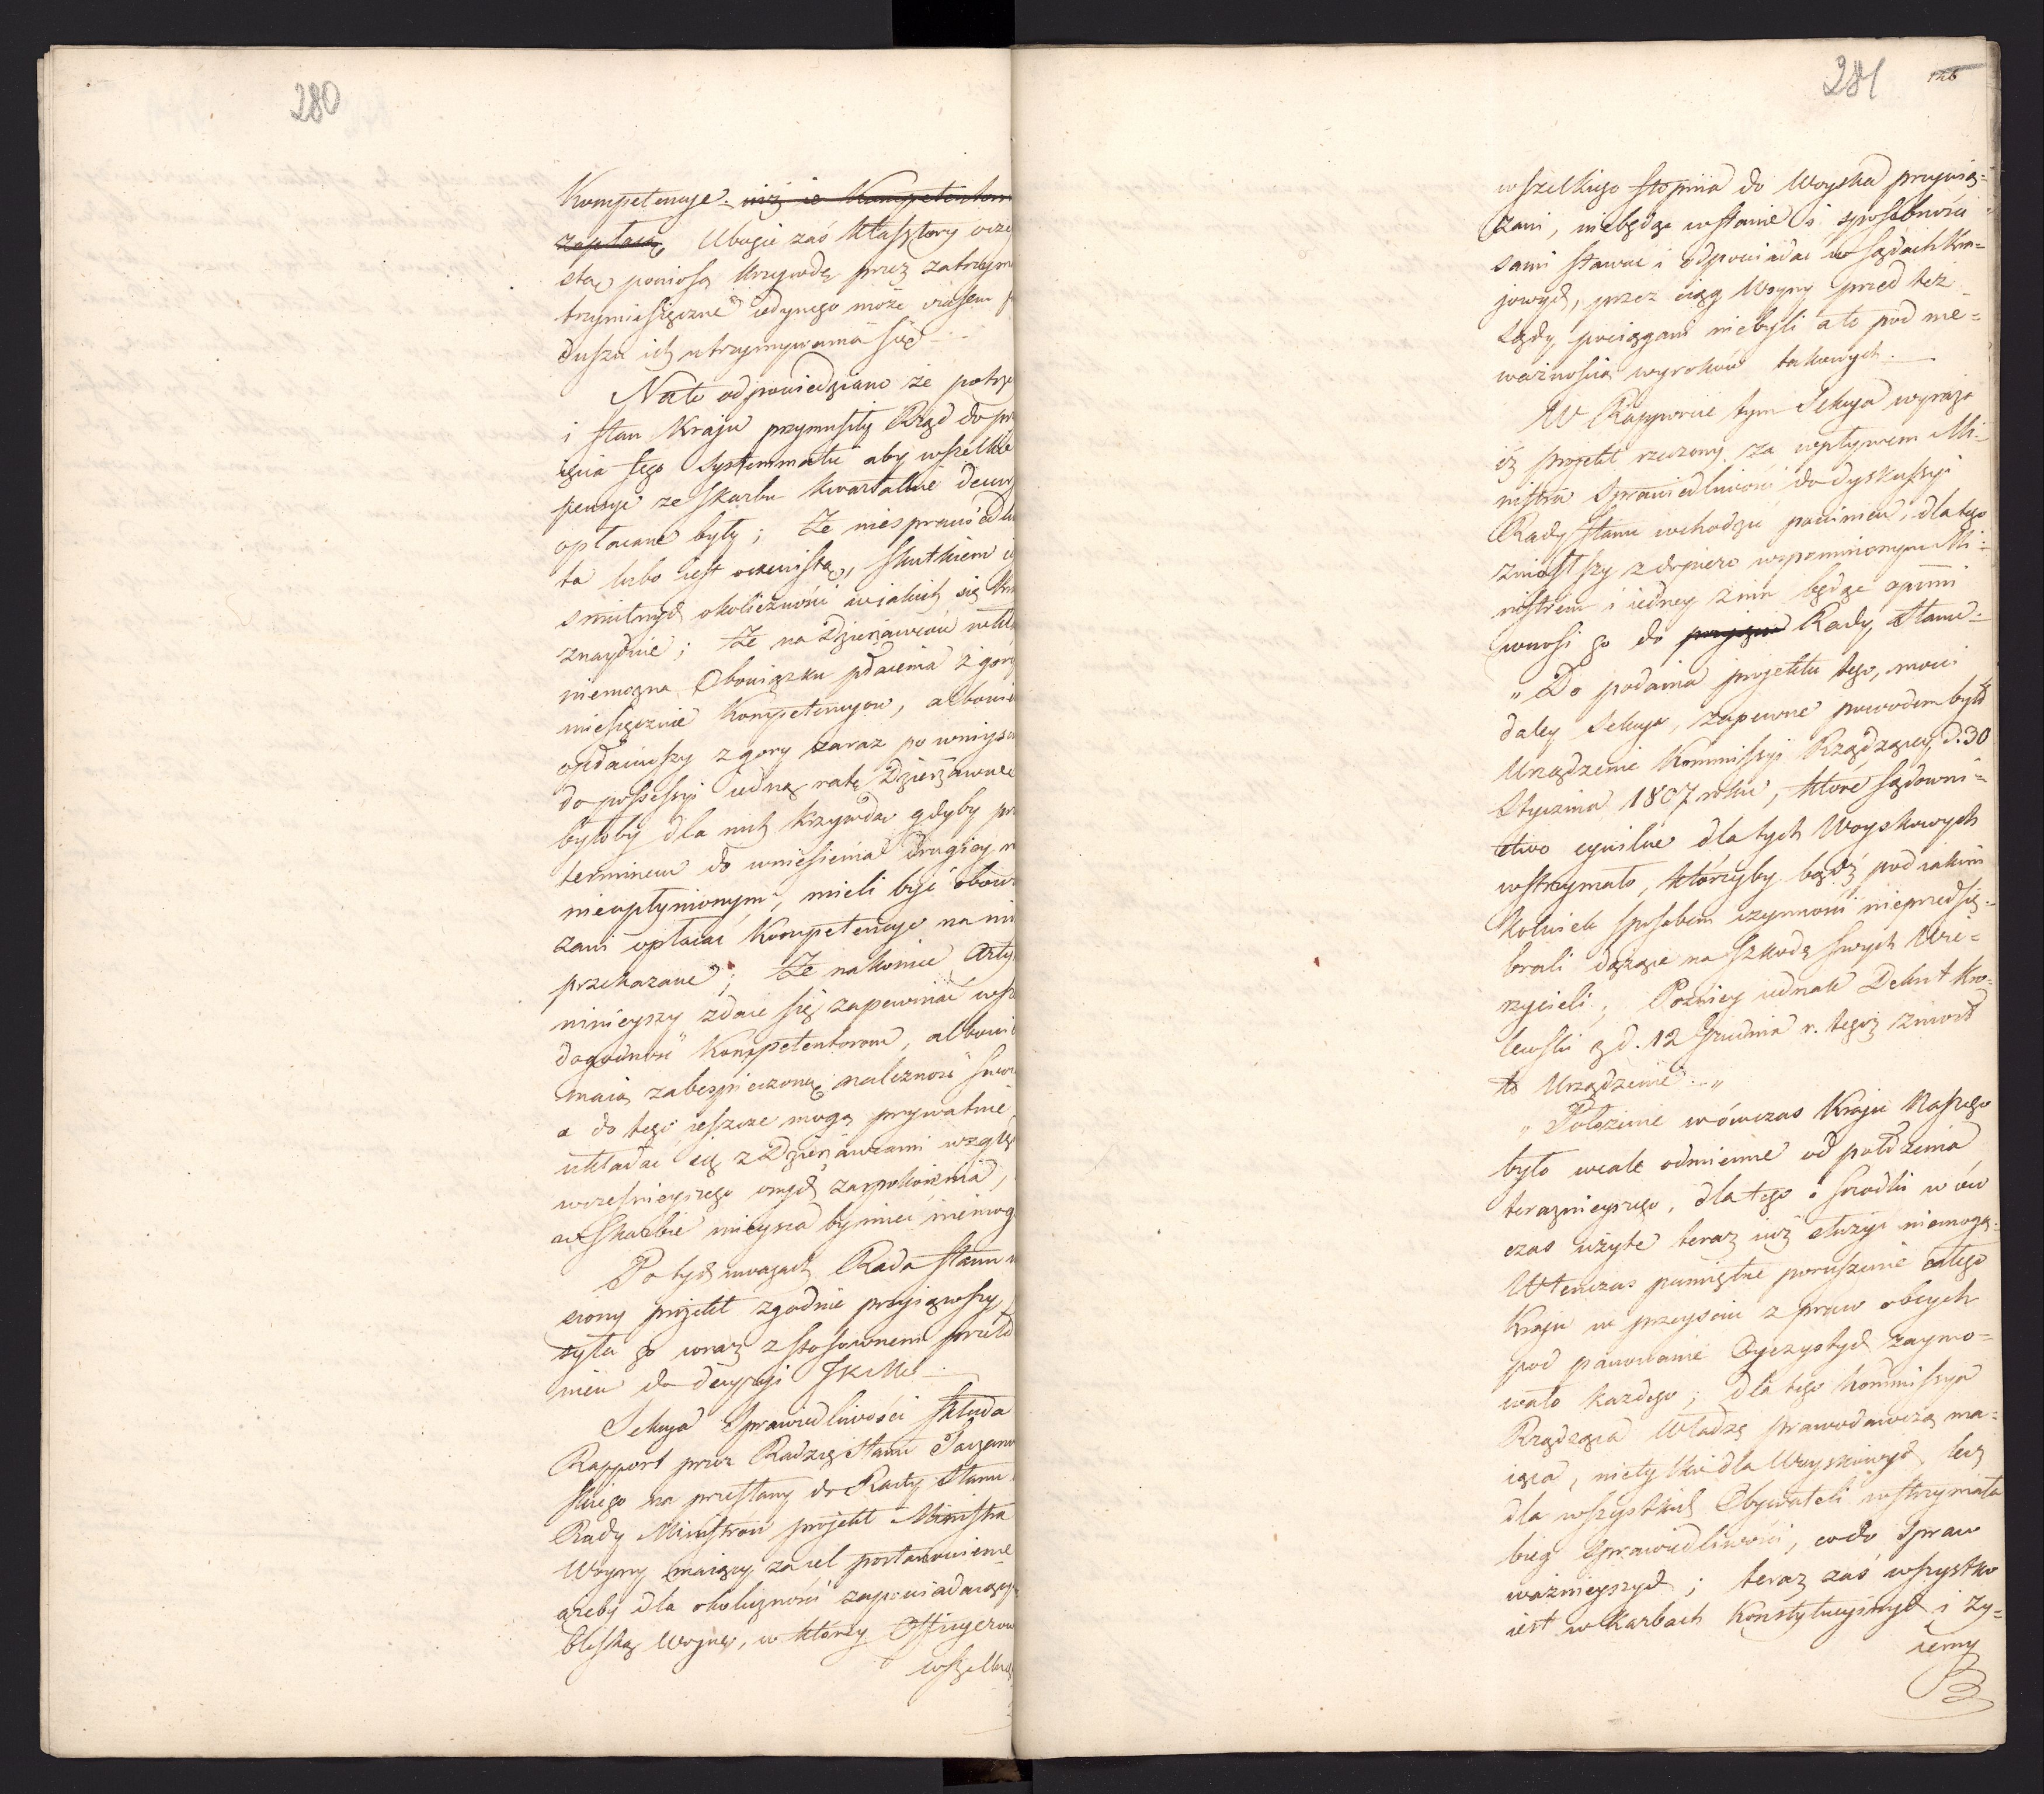 280
Kompetencye. niż ie Kompetentom
zapłacą Ubogie zaś Klasztory oczy
stą poniosą krzywdę przez zatrzym
trzymiesięczne iedynego może czasem fu
duszu ich utrzymywania się
Na to odpowiedziano że potrze
i stan Kraju przymusiły Rząd do prz
ięcia tego systemmatu aby wszelkie
pensye ze skarbu kwartalnie decurs
opłacane były; Że niesprawiedli
ta lubo iest oczewistą, skutkiem ie
smutnych okoliczności w iakich się Kra
znayduie; Że na Dzierżawców wkła
niemożna Obowiązku płacenia z gory
miesięcznie Kompetencyow, albowie
opłaciwszy z gory zaraz po wniyściu
do possessyi iedną ratę Dzierżawne
byłoby dla nich krzywdą gdyby prz
terminem do wniesienia drugiey r
nieupłynionym, mieli być obowi
zani opłacać Kompetencye na ni
przekazane; Że nakoniec Arty
ninieyszy zdaie się zapewniać wsz
dogodność Kompetentorom, albowie
maią zabespieczoną należność swoi
a do tego ieszcze mogą prywatnie
układać się z Dzierżawcami wzglę
wcześnieyszego onych zaspokoienia,
w Skarbie mieysca by mieć niemog
Po tych uwagach Rada Stanu w
siony projekt zgodnie przyiąwszy
syła go wraz z stosownem przeło
niem do decyzyi JKMci
Sekcya Sprawiedliwości składa
Rapport przez Radzcę Stanu
skiego na przesłany do Rady Stanu
Rady Ministrów projekt Ministra
Woyny maiący za cel postanowienie
ażeby dla okoliczności zapowiadaiący
bliską Woynę, w którey Officyerow
wszelkieg
281
126
wszelkiego stopnia do Woyska przywią-
zani, niebędąc w stanie i sposobności
sami stawać i odpowiadać w sądach Kra-
jowych, przez ciąg Woyny przed też
Sądy pociągani niebyli a to pod nie-
ważnością wyroków takowych.
W Rapporcie tym Sekcya wyraża
iż projekt rzeczony za wpływem Mi-
nistra Sprawiedliwości do dyskussyi
Rady Stanu wchodzić powinien, dlatego
zniosłszy z dopiero wspomnionym Mi-
nistrem i iedney z nim będąc opinii
wnosi go do przyięcia Rady Stanu
„Do podania projektu tego, mówi
daley Sekcya, zapewne powodem było
Urządzenie Kommissyi Rządzącey d. 30
Stycznia 1807 roku, które sądowni-
ctwo cywilne dla tych Woyskowych
wstrzymało, którzyby bądź pod iakim
kolwiek sposobem czynności nieprzedsię-
brali dążące na szkodę swych Wie-
rzycieli; Poźniey iednak Dekret Kró-
lewski z d. 12 Grudnia r. tegoż zniosł
to Urządzenie.„
„Położenie wówczas Kraju Naszego
było wcale odmienne od położenia
teraznieyszego, dla tego i środki w ów
czas użyte teraz iuż służyć niemogą.
Wtenczas pamiętne poruszenie całego
Kraju w przeyściu z praw obcych
pod panowanie Oyczystych zaymo-
wało każdego; dla tego Kommissya
Rządząca Władzę prawodawczą ma-
iąca, nietylko dla Woyskowych lecz
dla wszystkich Obywateli wstrzymała
bieg Sprawiedliwości, co do Spraw
ważnieyszych; teraz zaś wszystko
iest w karbach Konstytucyinych i Ży-
iemy